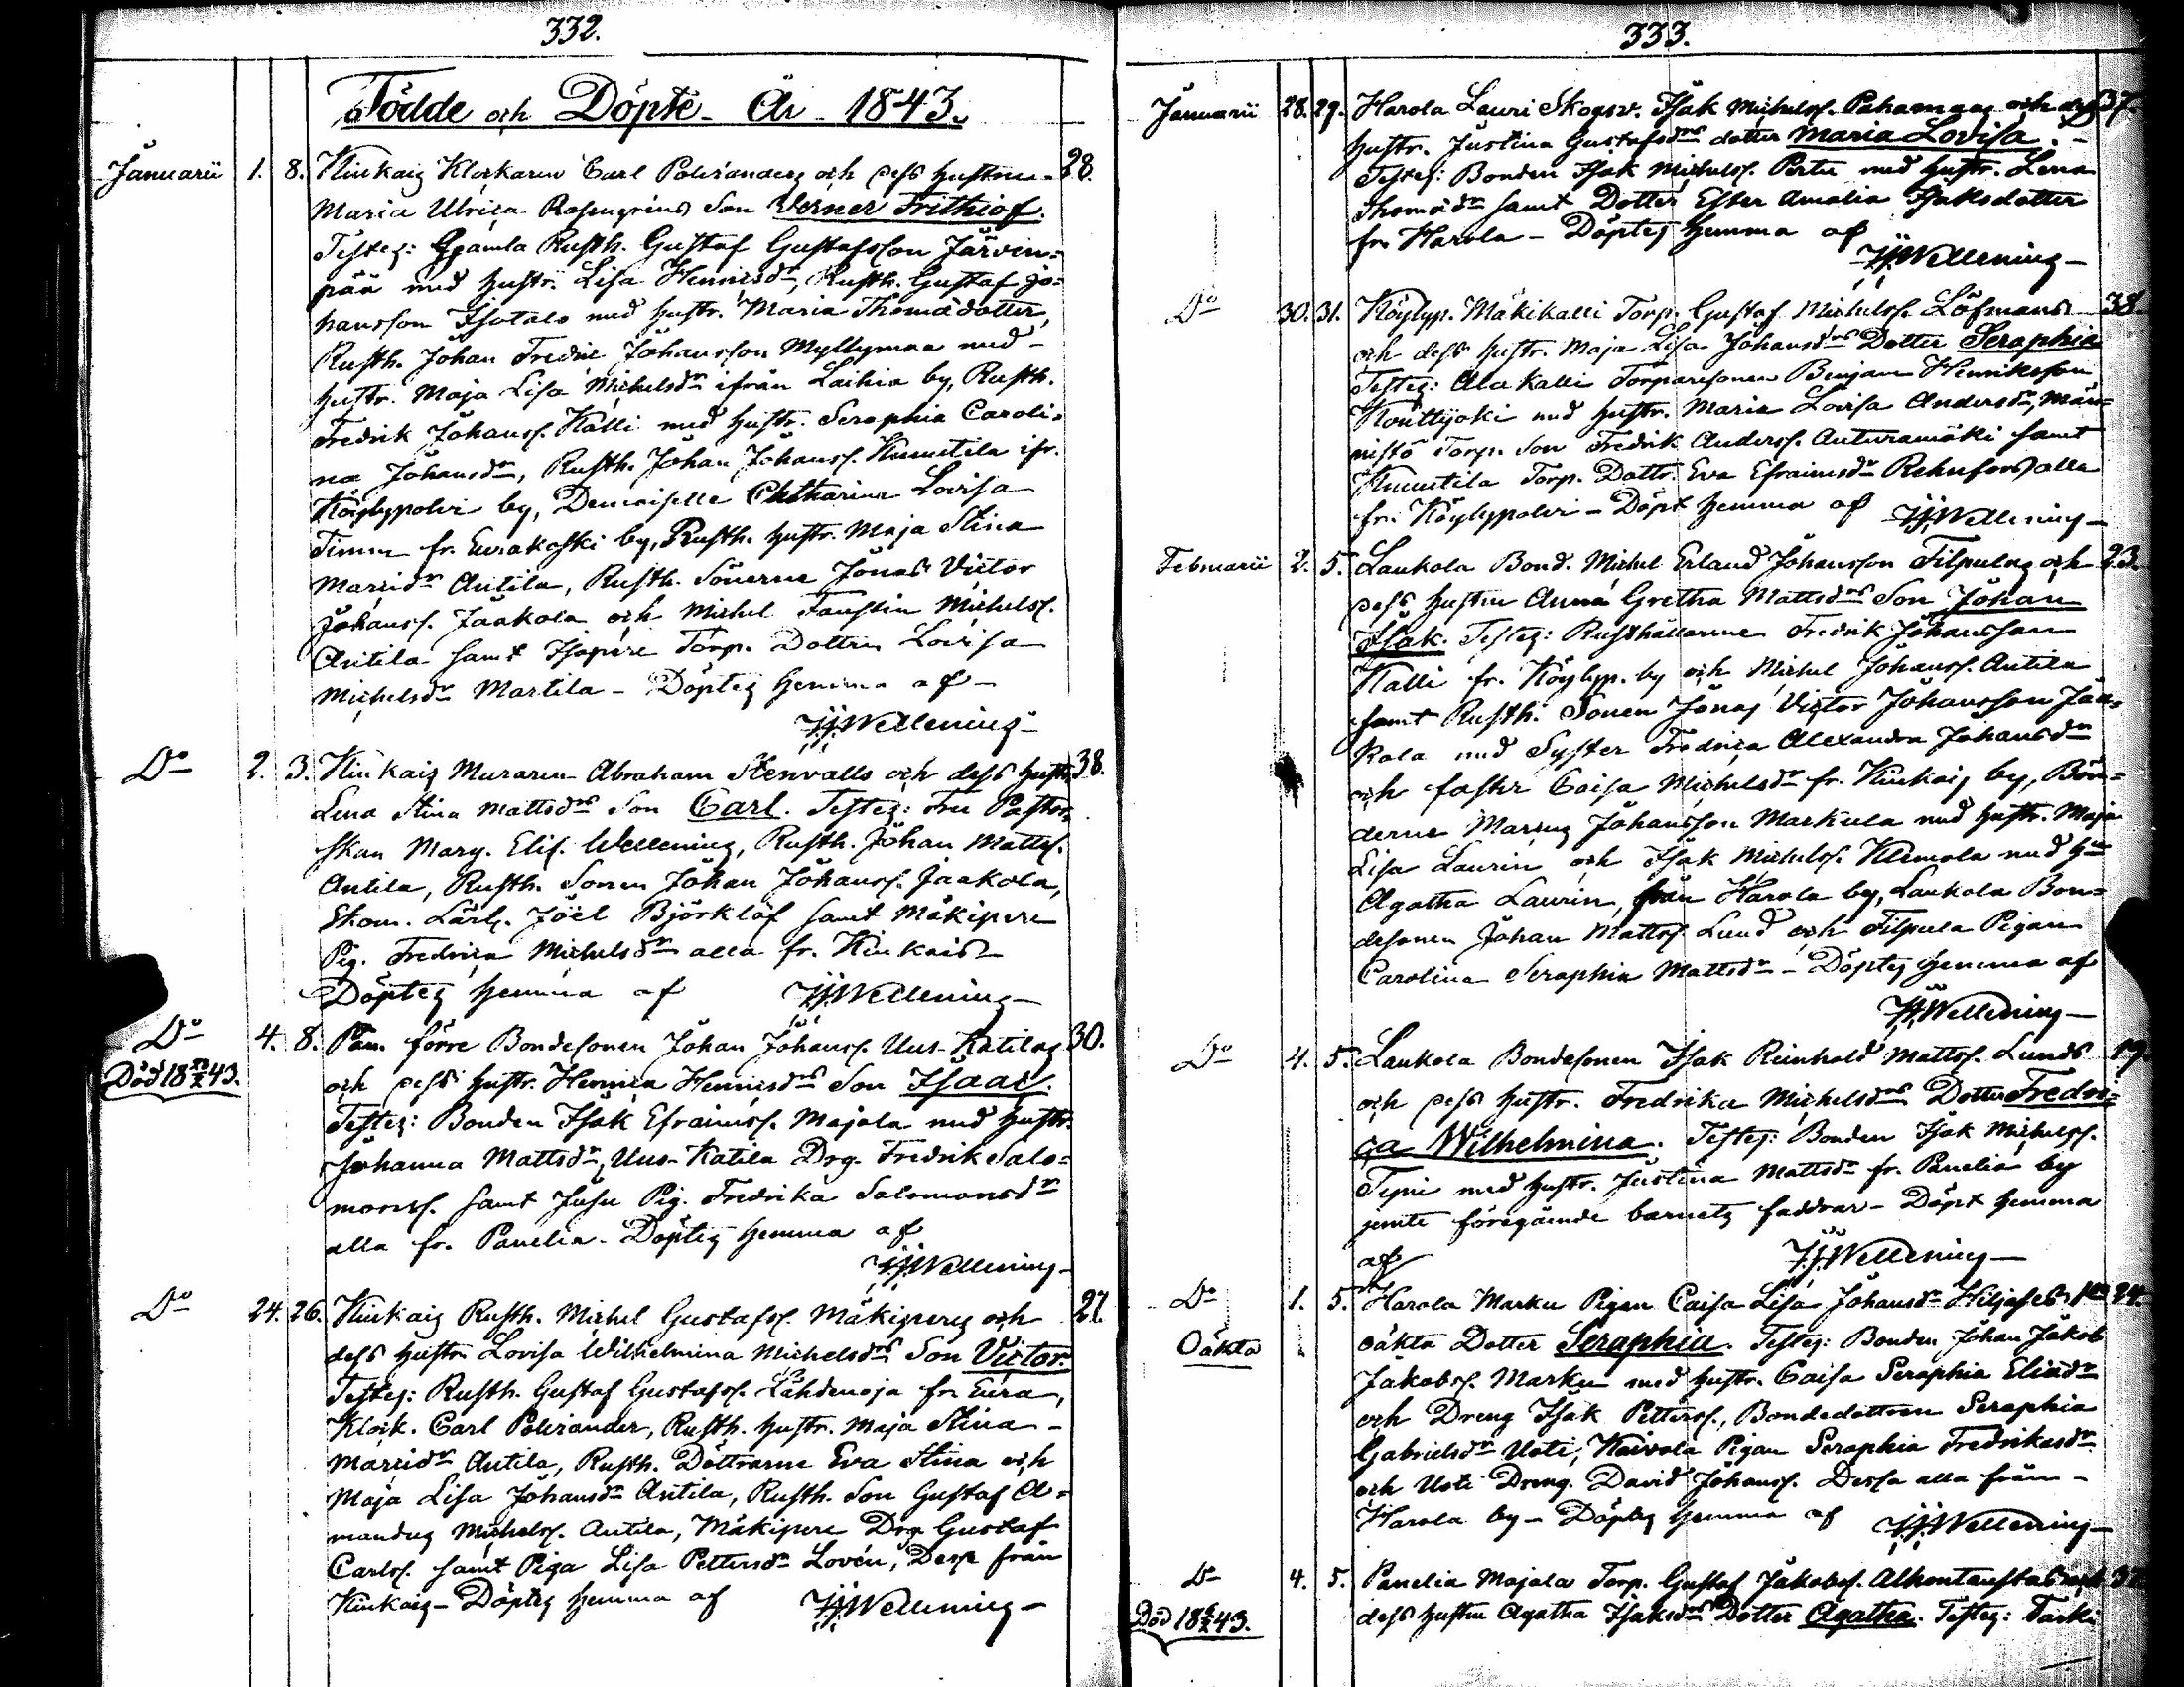 332.
Födde och Döpte År 1843.
Januarii 1. 8. Kiukais Klockaren Carl Polviander och dess hustru 28.
Maria Ulrica Rosengrens Son Verner Frithiof.
Testes: Gamla Rusth. Gustaf Gustafsson Järven=
pää med hustr. Lisa Henricsdr, Rusth. Gustaf Jo=
hansson Isotalo med hustr. Maria Thomædotter,
Rusth. Johan Fredric Johansson Myllymaa med
hustr. Maja Lisa Michelsdr ifrån Laihia by, Rusth.
Fredrik Johanss. Kalli med hustr. Seraphia Caroli=
na Johansdr, Rusth. Johan Johanss. Knuutila ifr.
Köylypolvi by, Demoiselle Catharina Lovisa
Timm fr. Eurakoski by, Rusth. hustr. Maja Stina
Marcidr Antila, Rusth. Sönerne Jonas Victor
Johanss. Jaakola och Michel Faustin Michelss.
Antila samt Isopere Torp. Dottren Lovisa
Michelsdr Martila - Döptes hemma af
Wellenius
Do 2. 3. Kiukais Muraren Abraham Stenvalls och dess hustr. 38.
Lena Stina Mattsdrs Son Carl. Testes: Fru Pastor=
skan Marg. Elis. Wellenius, Rusth. Johan Mattss.
Antila, Rusth. Sonen Johan Johanss. Jaakola,
Skom. Lärl. Joel Björklöf samt Mäkipere
Pig. Fredrica Michelsdr alla fr. Kiukais
Döptes hemma af Wellenius
Do 4. 8. Pan. förre Bondesonen Johan Johanss. Uus-Katilas 30.
Död 18 43.
och dess hustr. Henrica Henricsdrs Son Isaac.
Testes: Bonden Isak Efraimss. Majala med hustr.
Johanna Mattsdr, Uus-Katila Drg. Fredrik Salo=
monss. samt Pig. Fredrika Salomonsdr
alla fr. Panelia - Döptes hemma af
Wellenius
Do 24. 26. Kiukais Rusth. Michel Gustafss. Mäkiperes och 27.
dess hustru Lovisa Wilhelmina Michelsdrs Son Victor.
Testes: Rusth. Gustaf Gustafss. Lähdenoja fr. Eura,
Klock. Carl Polviander, Rusth. hustr. Maja Stina
Marcidr Antila, Rusth. Döttrarne Eva Stina och
Maja Lisa Johansdr Antila, Rusth. Son Gustaf A=
mandus Michelss. Antila, Mäkipere Drg Gustaf
Carlss. samt Piga Lisa Pettersdr Lovén, Dess från
Kiukais - Döptes hemma af Wellenius
333.
Januarii 28. 29. Harola Lauri Skogsv. Isak Michelss. Pahamaas och dess 37.
hustr. Justina Gustafsdrs dotter Maria Lovisa.
Testes: Bonden Isak Michelss. Perttu med hustr. Lena
Thomædr samt Dotter Ester Amalia Isaksdotter
fr. Harola - Döptes hemma af
Wellenius
Do 30. 31. Köylyp. Mäkikalli Torp. Gustaf Michelss. Löfmans 38.
och dess hustr. Maja Lisa Johansdrs Dotter Seraphia
Testes: Alakalli Torparesonen Benjam Henriksson
Kouttyoki med hustr. Maria Lovisa Andersdr, Män=
nistö Torp. Son Fredrik Anderss. Anturamäki samt
Knuutila Torp. Dottr. Eva Efraimsdr Rehnfors alla
fr. Köylypolvi - Döpt hemma af Wellenius
Februarii 2. 5. Laukola Bond. Michel Erland Johansson Filpulas och 23.
dess hustru Anna Gretha Mattsdrs Son Johan
Isak. Testes: Rusthållarene Fredrik Johansson
Kalli fr. Köylyp. by och Michel Johanss. Antila
samt Rusth. Sonen Jonas Victor Johansson Jaa=
kola med Syster Fredrica Alexandra Johansdr
och faster Caisa Michelsdr fr. Kiukais by, Bön=
derne Marcus Johansson Markula med hustr. Maja
Lisa Laurin och Isak Michelss. Klemola med hu
Agatha Laurin, från Harola by, Laukola Bon=
desonen Johan Mattss. Lund och Filpula Pigan
Carolina Seraphia Mattsdr - Döptes hemma af
Wellenius
Do 4. 5. Laukola Bondesonen Isak Reinhold Mattss. Lunds 19.
och dess hustr. Fredrika Michelsdrs Dotter Fredri=
ca Wilhelmina. Testes: Bonden Isak Michelss.
Typi med hustr. Justina Mattsdr fr. Panelia by
jemte föregående barnets faddrar - Döpt hemma
af Wellenius
Do 1. 5. Harola Marku Pigan Caisa Lisa Johansdr 24.
Oäkta
oäkta Dotter Seraphia. Testes: Bonden Johan Jakob
Jakobss. Marku med hustr. Caisa Seraphia Eliædr
och Dreng Isak Petterss., Bondedottren Seraphia
Gabrielsdr Uoti, Kaivola Pigan Seraphia Fredriksdr
och Uoti Dreng. David Johanss. Dessa alla från
Harola by - Döptes hemma af Wellenius
Do 4. 5. Panelia Majala Torp. Gustaf Jakobss. och 37.
Död 18 43.
dess hustru Agatha Isaksdrs Dotter Agatha. Testes: